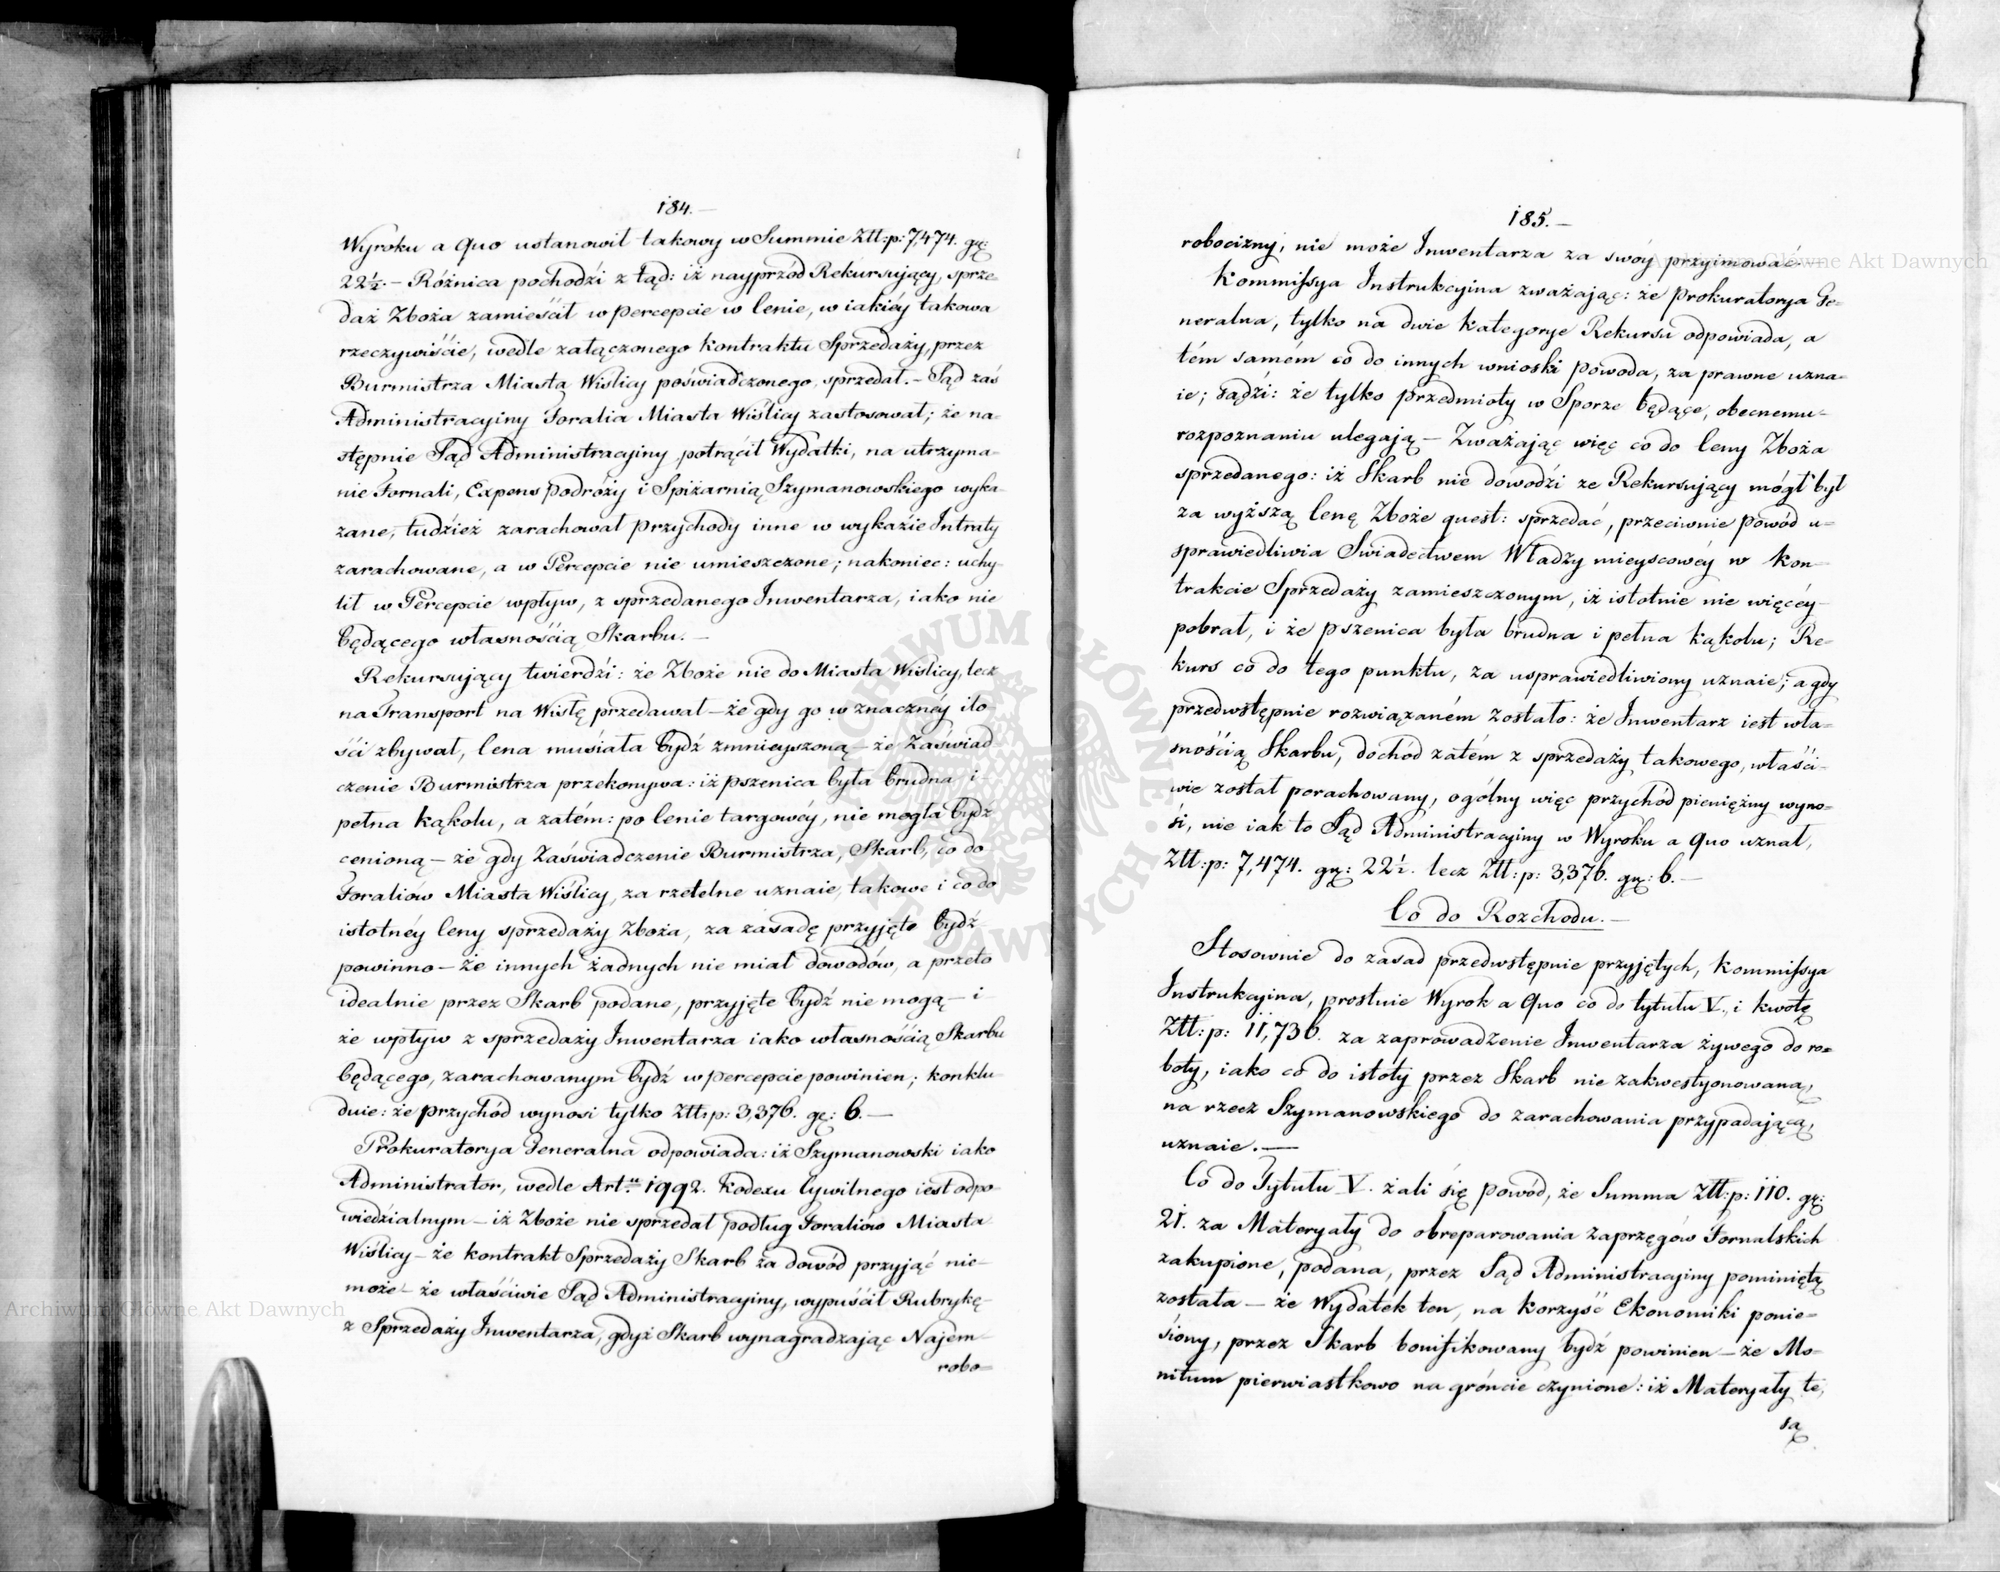 184.—
Wyroku a Quo ustanowił takowy w Summie Złł:p: 7,474. gr:
22½.— Różnica pochodźi z tąd: iż nayprzód Rekursujący, sprze-
daż Zboża zamieśćił w percepcie w Cenie, w iakiéy takowa
rzeczywiśćie, wedle załączonego kontraktu Sprzedaży, przez
Burmistrza Miasta Wiślicy poświadczonego, sprzedał.— Sąd zaś
Administracyiny Foralia Miasta Wiślicy zastosował; że na-
stępnie Sąd Administracyiny potrącił Wydatki, na utrzyma-
nie Fornali, Expens podróży i Spiżarnią Szymanowskiego wyka-
zane, tudźież zarachował przychody inne w wykaźie Intraty
zarachowane, a w Percepcie nie umieszczone; nakoniec: uchy-
lił w Percepcie wpływ, z sprzedanego Inwentarza, iako nie
będącego własnośćią Skarbu.—
Rekursujący twierdźi: że Zboże nie do Miasta Wiślicy, lecz
na Transport na Wisłę przedawał — że gdy go w znacznéy ilo-
śći zbywał, Cena muśiała bydź zmnieyszoną — że Zaświad-
czenie Burmistrza przekonywa: iż pszenica była brudna i
pełna kąkolu, a zatém: po Cenie targowéy, nie mogła bydź
cenioną — że gdy Zaświadczenie Burmistrza, Skarb, co do
Foraliów Miasta Wiślicy, za rzetelne uznaie, takowe i co do
istotnéy Ceny sprzedaży Zboża, za zasadę przyjęte bydź
powinno — że innych żadnych nie miał dowodów, a przeto
idealnie przez Skarb podane, przyjęte bydź nie mogą — i
że wpływ z sprzedaży Inwentarza iako własnośćią Skarbu
będącego, zarachowanym bydź w percepcie powinien; konklu-
duie: że przychód wynosi tylko Złł:p: 3,376. gr: 6.—
Prokuratorya Generalna odpowiada: iż Szymanowski iako
Administrator, wedle Art.u 1992. Kodexu Cywilnego iest odpo-
wiedzialnym — iż Zboże nie sprzedał podług Foraliów Miasta
Wiślicy — że kontrakt Sprzedaży Skarb za dowód przyjąć nie
może — że właśćiwie Sąd Administracyiny, wypuśćił Rubrykę
z Sprzedaży Inwentarza, gdyż Skarb wynagradzając Najem
robo=
185.—
robocizny, nie może Inwentarza za swóy przyimować.—
Kommissya Instrukcyina zważając: że Prokuratorya Ge-
neralna, tylko na dwie kategorye Rekursu odpowiada, a
tém samém co do innych wnioski Powoda, za prawne uzna-
ie; sądźi: że tylko przedmioty w Sporze będące, obecnemu
rozpoznaniu ulegają — Zważając więc co do Ceny Zboża
sprzedanego: iż Skarb nie dowodźi ze Rekursujący mógł był
za wyższą Cenę Zboże quest: sprzedać, przeciwnie Powód u-
sprawiedliwia Swiadectwem Władzy mieyscowéy w kon-
trakcie Sprzedaży zamieszczonym, iż istotnie nie więcéy
pobrał, i że pszenica była brudna i pełna kąkolu; Re-
kurs co do tego punktu, za usprawiedliwiony uznaie; a gdy
przedwstępnie rozwiązaném zostało: że Inwentarz iest wła-
snośćią Skarbu, dochód zatém z sprzedaży takowego, właśći-
wie został porachowany, ogólny więc przychód pieniężny wyno-
śi, nie iak to Sąd Administracyiny w Wyroku a Quo uznał,
Złł:p: 7,474. gr: 22½. lecz Złł:p: 3,376. gr: 6.—
Co do Rozchodu.—
Stosownie do zasad przedwstępnie przyjętych, Kommissya
Instrukcyina, prostuie Wyrok a Quo co do tytułu V., i kwotę
Złł:p: 11,736. za zaprowadzenie Inwentarza żywego do ro=
boty, iako co do istoty przez Skarb nie zakwestyonowaną,
na rzecz Szymanowskiego do zarachowania przypadającą,
uznaie.—
Co do Tytułu V. żali śię Powód, że Summa Złł:p: 110. gr:
21. za Materyały do obreparowania zaprzęgów Fornalskich
zakupione, podana, przez Sąd Administracyiny pominiętą
została — że Wydatek ten, na korzyść Ekonomiki ponie=
śiony, przez Skarb bonifikowany bydź powinien — że Mo-
nitum pierwiastkowo na gróncie czynione: iż Materyały te,
są
Archiwum Główne Akt Dawnych
Archiwum Główne Akt Dawnych
ARCHIWUM GŁÓWNE AKT DAWNYCH